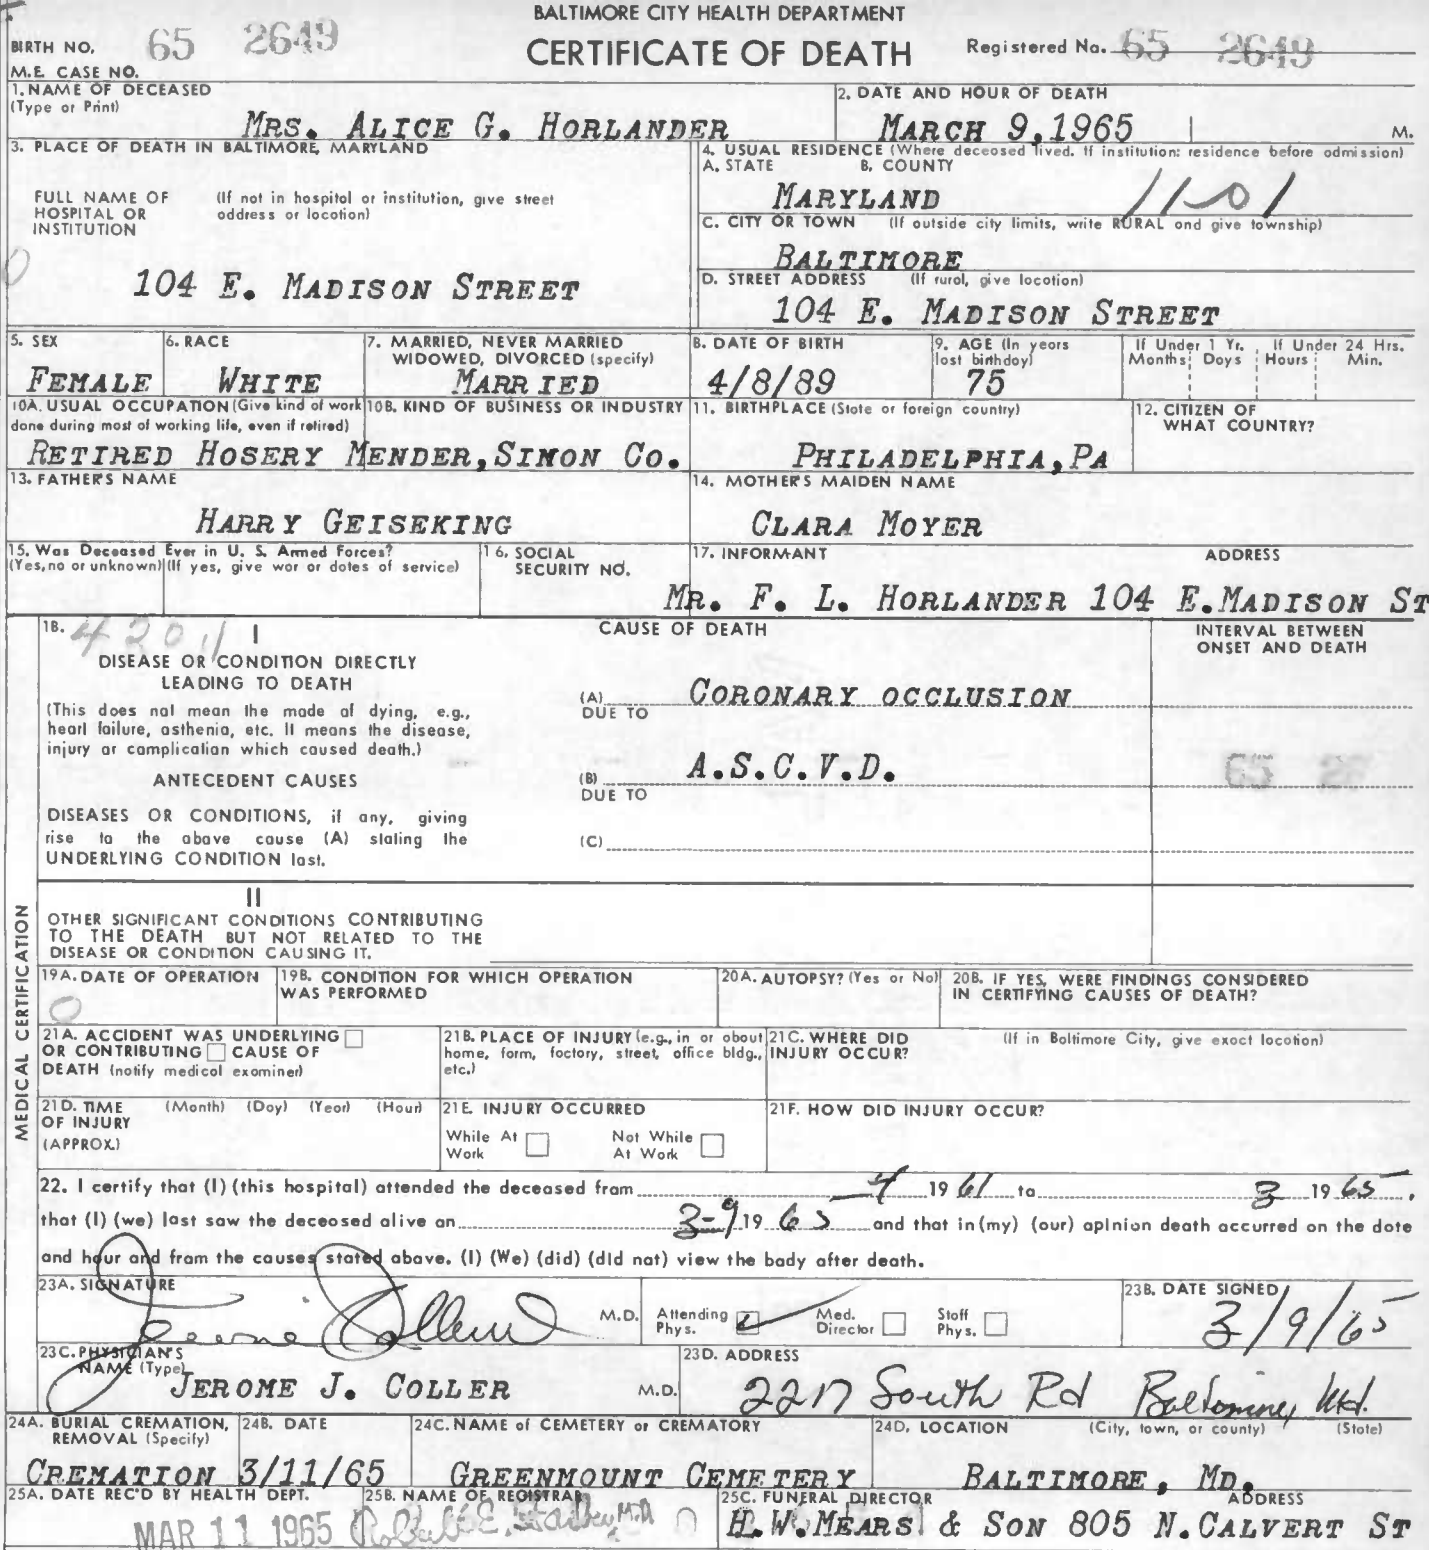 BALTIMORE CITY HEALTH DEPARTMENT
BIRTH NO. 65 2649
CERTIFICATE OF DEATH
Registered No. 65 2649
M.E. CASE NO.
1. NAME OF DECEASED
(Type or Print)
MRS. ALICE G. HORLANDER
2. DATE AND HOUR OF DEATH
MARCH 9, 1965 M.
3. PLACE OF DEATH IN BALTIMORE, MARYLAND
FULL NAME OF HOSPITAL OR INSTITUTION
(If not in hospital or institution, give street address or location)
104 E. MADISON STREET
4. USUAL RESIDENCE (Where deceased lived. If institution: residence before admission)
A. STATE B. COUNTY
MARYLAND 1101
C. CITY OR TOWN (If outside city limits, write RURAL and give township)
BALTIMORE
D. STREET ADDRESS (If rural, give location)
104 E. MADISON STREET
5. SEX
FEMALE
6. RACE
WHITE
7. MARRIED, NEVER MARRIED
WIDOWED, DIVORCED (specify)
MARRIED
8. DATE OF BIRTH
4/8/89
9. AGE (In years
last birthday)
75
If Under 1 Yr. If Under 24 Hrs.
Months Days Hours Min.
10A. USUAL OCCUPATION (Give kind of work
done during most of working life, even if retired)
10B. KIND OF BUSINESS OR INDUSTRY
RETIRED HOSERY MENDER, SIMON CO.
11. BIRTHPLACE (State or foreign country)
PHILADELPHIA, PA
12. CITIZEN OF
WHAT COUNTRY?
13. FATHER'S NAME
HARRY GEISEKING
14. MOTHER'S MAIDEN NAME
CLARA MOYER
15. Was Deceased Ever in U. S. Armed Forces?
(Yes, no or unknown) (If yes, give war or dates of service)
16. SOCIAL
SECURITY NO.
17. INFORMANT ADDRESS
MR. F. L. HORLANDER 104 E. MADISON ST
MEDICAL CERTIFICATION
18. 420.1 I
CAUSE OF DEATH
INTERVAL BETWEEN
ONSET AND DEATH
DISEASE OR CONDITION DIRECTLY
LEADING TO DEATH
(This does not mean the mode of dying, e.g.,
heart failure, asthenia, etc. It means the disease,
injury or complication which caused death.)
(A) CORONARY OCCLUSION
DUE TO
ANTECEDENT CAUSES
(B) A.S.C.V.D.
DUE TO
65
DISEASES OR CONDITIONS, if any, giving
rise to the above cause (A) stating the
UNDERLYING CONDITION last.
(C)
II
OTHER SIGNIFICANT CONDITIONS CONTRIBUTING
TO THE DEATH BUT NOT RELATED TO THE
DISEASE OR CONDITION CAUSING IT.
19A. DATE OF OPERATION
0
19B. CONDITION FOR WHICH OPERATION
WAS PERFORMED
20A. AUTOPSY? (Yes or No)
20B. IF YES, WERE FINDINGS CONSIDERED
IN CERTIFYING CAUSES OF DEATH?
21A. ACCIDENT WAS UNDERLYING
OR CONTRIBUTING CAUSE OF
DEATH (notify medical examiner)
21B. PLACE OF INJURY (e.g., in or about
home, farm, factory, street, office bldg.,
etc.)
21C. WHERE DID (If in Baltimore City, give exact location)
INJURY OCCUR?
21D. TIME (Month) (Day) (Year) (Hour)
OF INJURY
(APPROX.)
21E. INJURY OCCURRED
While At Work Not While At Work
21F. HOW DID INJURY OCCUR?
22. I certify that (I) (this hospital) attended the deceased from 4 19 61 to 3 19 65,
that (I) (we) last saw the deceased alive on 3-9 19 65 and that in (my) (our) opinion death occurred on the date
and hour and from the causes stated above. (I) (We) (did) (did not) view the body after death.
23A. SIGNATURE
Jerome Coller M.D.
Attending Phys. Med. Director Staff Phys.
23B. DATE SIGNED
3/9/65
23C. PHYSICIAN'S
NAME (Type)
JEROME J. COLLER M.D.
23D. ADDRESS
2217 South Rd Baltimore, Md.
24A. BURIAL CREMATION,
REMOVAL (Specify)
CREMATION
24B. DATE
3/11/65
24C. NAME of CEMETERY or CREMATORY
GREENMOUNT CEMETERY
24D. LOCATION (City, town, or county) (State)
BALTIMORE, MD.
25A. DATE REC'D BY HEALTH DEPT.
MAR 11 1965
25B. NAME OF REGISTRAR
Robert E. Farber, M.D.
25C. FUNERAL DIRECTOR ADDRESS
H. W. MEARS & SON 805 N. CALVERT ST